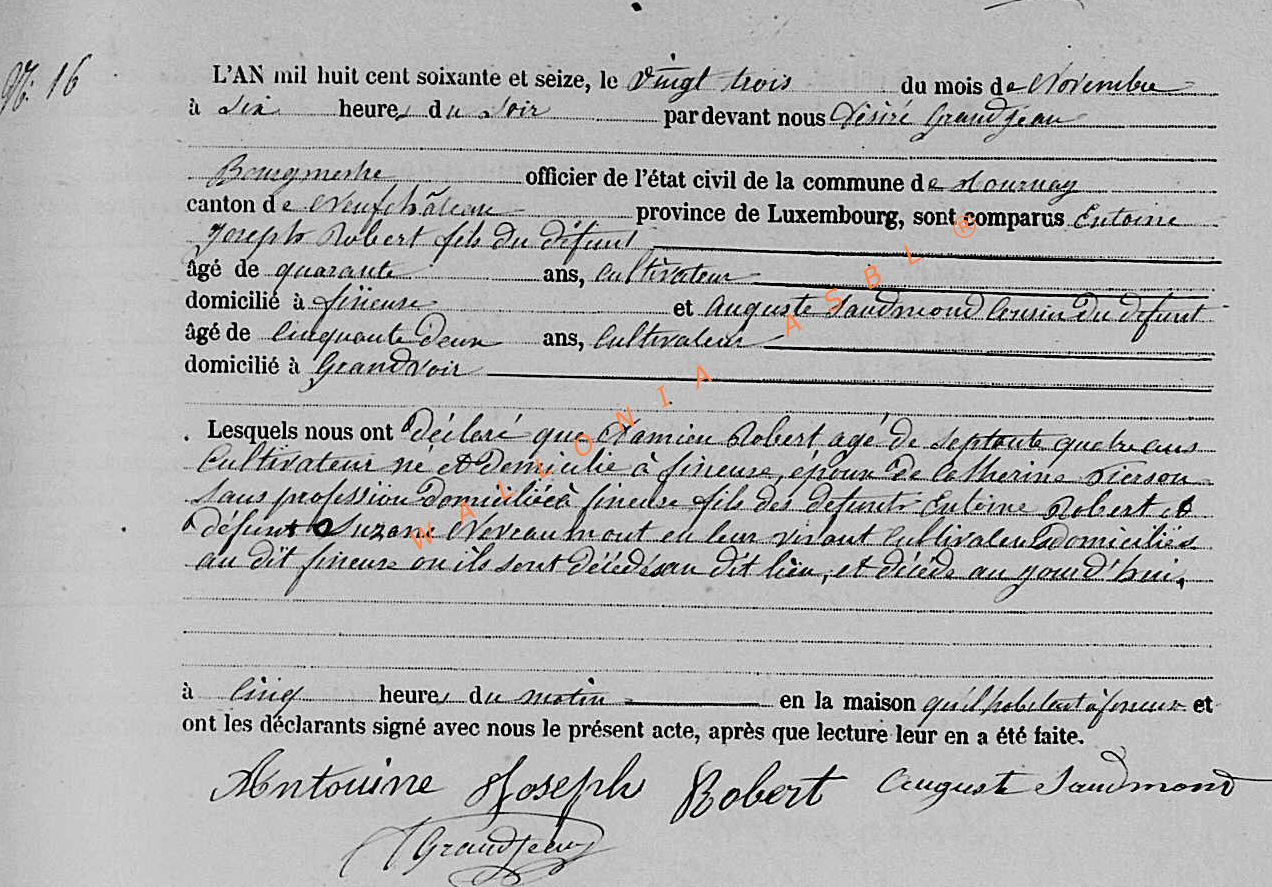 N° 16
L'AN mil huit cent soixante et seize, le vingt trois du mois de Novembre
à six heures du soir par devant nous Désiré Grandjean
Bourgmestre officier de l'état civil de la commune de Tournay
canton de Neufchâteau province de Luxembourg, sont comparus Entoine
Joseph Robert fils du défunt
âgé de quarante ans, cultivateur
domicilié à fineuse et Auguste Jaudmond Cousin du défunt
âgé de Cinquante deux ans, Cultivateur
domicilié à Grandvoir
Lesquels nous ont déclaré que Damien Robert agé de septante quatre ans
Cultivateur né et domicilié à fineuse, époux de Catherine Pierson
sans profession domiciliée à fineuse fils des defunts Entoine Robert et
défunt Suzane en leur vivant Cultivateurs domiciliés
au dit fineuse ou ils sont décédés au dit lieu, et décédé au jourd'hui,
à Cinq heures du matin en la maison qu'il habitait à fineuse et
ont les déclarants signé avec nous le présent acte, après que lecture leur en a été faite.
Antouine Joseph Robert Auguste Jaudmond
Grandjean
WALLONIA ASBL ®